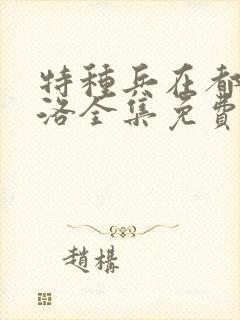 特種兵在都
洛全集免費
趙構